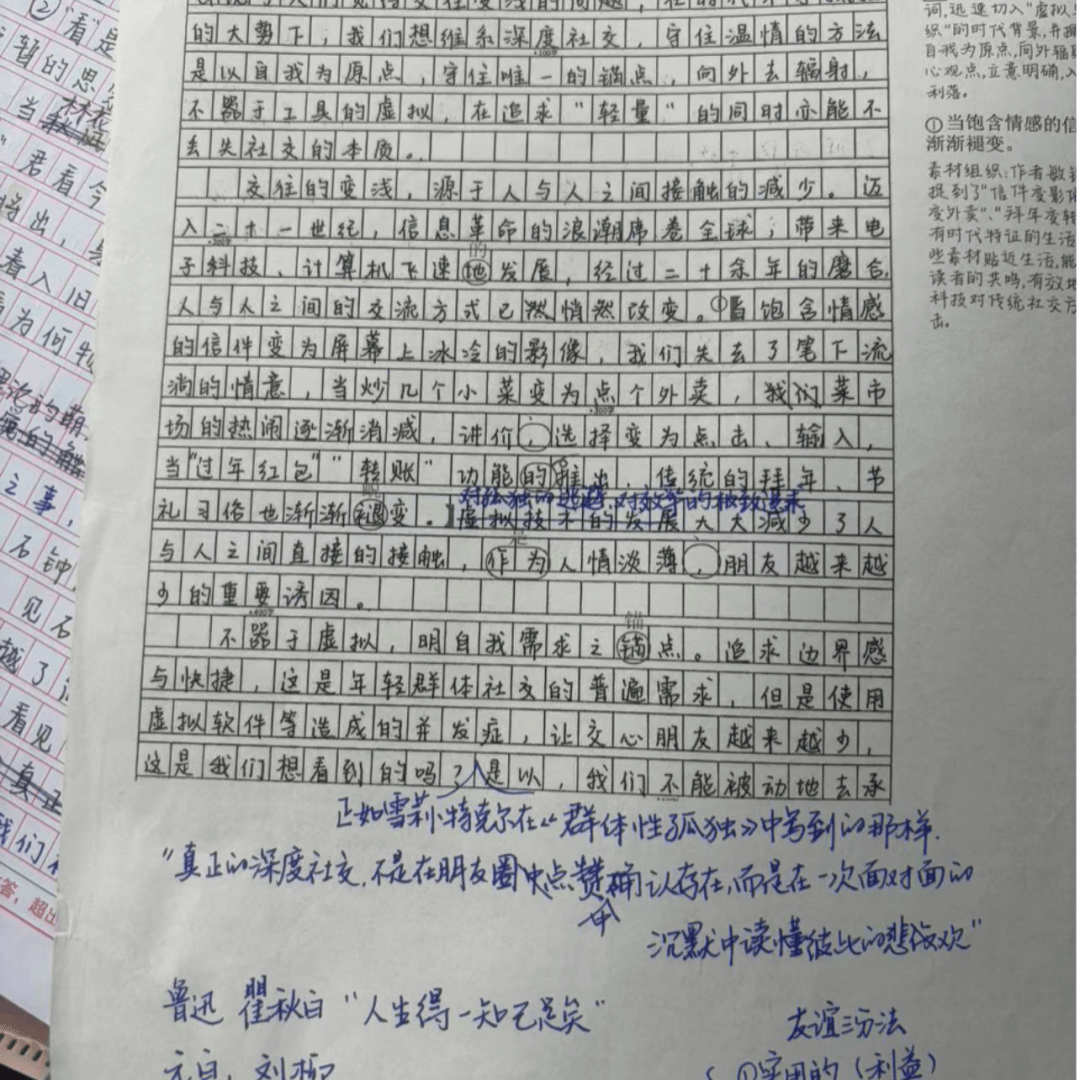 的大势下，我们想维系深度社交，守住温情的方法
是以自我为原点，守住唯一的锚点，向外去辐射，
不器于工具的虚拟，在追求"轻量"的同时亦能不
丢失社交的本质。
交往的变浅，源于人与人之间接触的减少。迈
入二十一世纪，信息革命的浪潮席卷全球，带来电
子科技、计算机飞速地发展，经过二十余年的磨合，
的
人与人之间的交流方式已然悄然改变。①当饱含情感
的信件变为屏幕上冰冷的影像，我们失去了笔下流
淌的情意，当炒几个小菜变为点个外卖，我们菜市
场的热闹逐渐消减，讲价、选择变为点击、输入，
当"过年红包""转账"功能的推出，传统的拜年、节
礼习俗也渐渐褪变。虚拟技术的发展大大减少了人
对孤独的逃避，对效率的极致追求
与人之间直接的接触，作为人情淡薄，朋友越来越
是
、
少的重要诱因。
不器于虚拟，明自我需求之锚点。追求边界感
锚
与快捷，这是年轻群体社交的普遍需求，但是使用
虚拟软件等造成的并发症，让交心朋友越来越少，
这是我们想看到的吗？是以，我们不能被动地去承
正如雪莉·特克尔在《群体性孤独》中写到的那样，
"真正的深度社交，不是在朋友圈中点赞确认存在，而是在一次面对面的
沉默中读懂彼此的悲伤欢"
鲁迅 瞿秋白 "人生得一知己足矣"
元白，刘柳
友谊三分法
①实用的（利益）
词，迅速切入"虚拟
织"的时代背景，并
自我为原点，向外辐
心观点，立意明确，入
利落。
①当饱含情感的信
渐渐褪变。
素材组织：作者敏
捉到了"信件变影
变外卖"、"拜年变转
有时代特征的生活
些素材贴近生活，能
读者的共鸣，有效地
科技对传统社交方
击。
②"看"是
暂的思
当
君看今
将出，
看入旧
为何
之事，
石钟
见石
越了
看见
真正
我们
答，超出